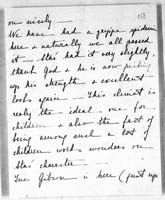 on nicely —
We have had a grippe epidemic
here & naturally we all passed
it — Stas' had it very slightly
thank God & he is now picking
up his strength & excellent
looks again — This climate is
really the ideal one for
children & also the fact of
being among such a lot of
children works wonders on
Stas' character —
Gibson is here (just up